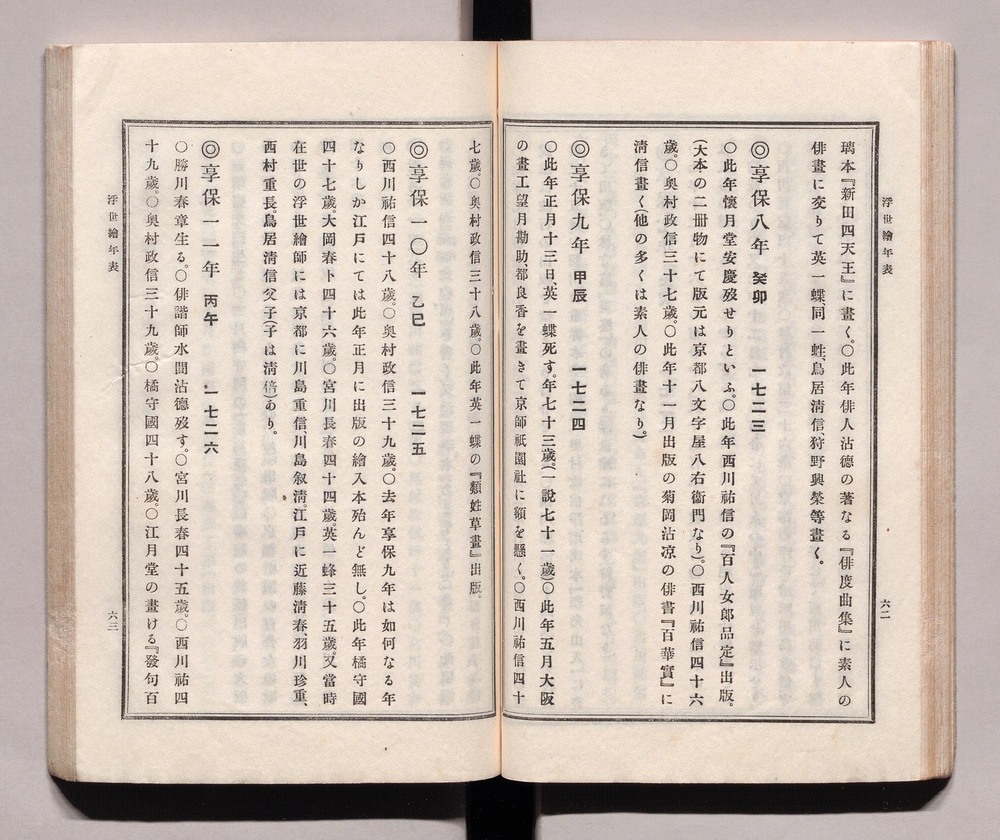 浮世繪年表
六二
璃本『新田四天王』に畫く。〇此年俳人沾德の著なる『俳度曲集』に素人の
俳畫に交りて英一蝶、同一蜓、鳥居淸信狩野興榮等畫く。
◎享保八年 癸卯 一七二三
〇此年懷月堂安慶歿せりといふ。〇此年西川祐信の『百人女郎品定』出版。
(大本の二册物にて版元は京都八文字屋八右衞門なり)。〇西川祐信四十六
歲。〇奥村政信三十七歲。〇此年十一月出版の菊岡沾凉の俳書『百華實』に
淸信畫く(他の多くは素人の俳畫なり。)
◎享保九年 甲辰 一七二四
〇此年正月十三日、英一蝶死す。年七十三歲。(一說七十一歲)〇此年五月大阪
の畫工望月勘助、都良香を畫きて京師祇園社に額を懸く。〇西川祐信四十
七歲。〇奥村政信三十八歲。〇此年英一蝶の『類姓草畫』出版。
◎享保一〇年 乙巳 一七二五
〇西川祐信四十八歲。〇奥村政信三十九歲。〇去年享保九年は如何なる年
なりしか江戸にては此年正月に出版の繪入本殆んど無し。〇此年橘守國
四十七歲。大岡春卜四十六歲。〇宮川長春四十四歲。英一蜂三十五歲。又當時
在世の浮世繪師には京都に川島重信、川島叙淸。江戸に近藤淸春、羽川珍重、
西村重長。鳥居淸信父子(子は淸倍)あり。
◎享保一一年 丙午 一七二六
〇勝川春章生る。〇俳諧師水間沾德歿す。〇宮川長春四十五歲。〇西川祐四
十九歲。〇奥村政信三十九歲。〇橘守國四十八歲。〇江月堂の畫ける『發句百
浮世繪年表
六三